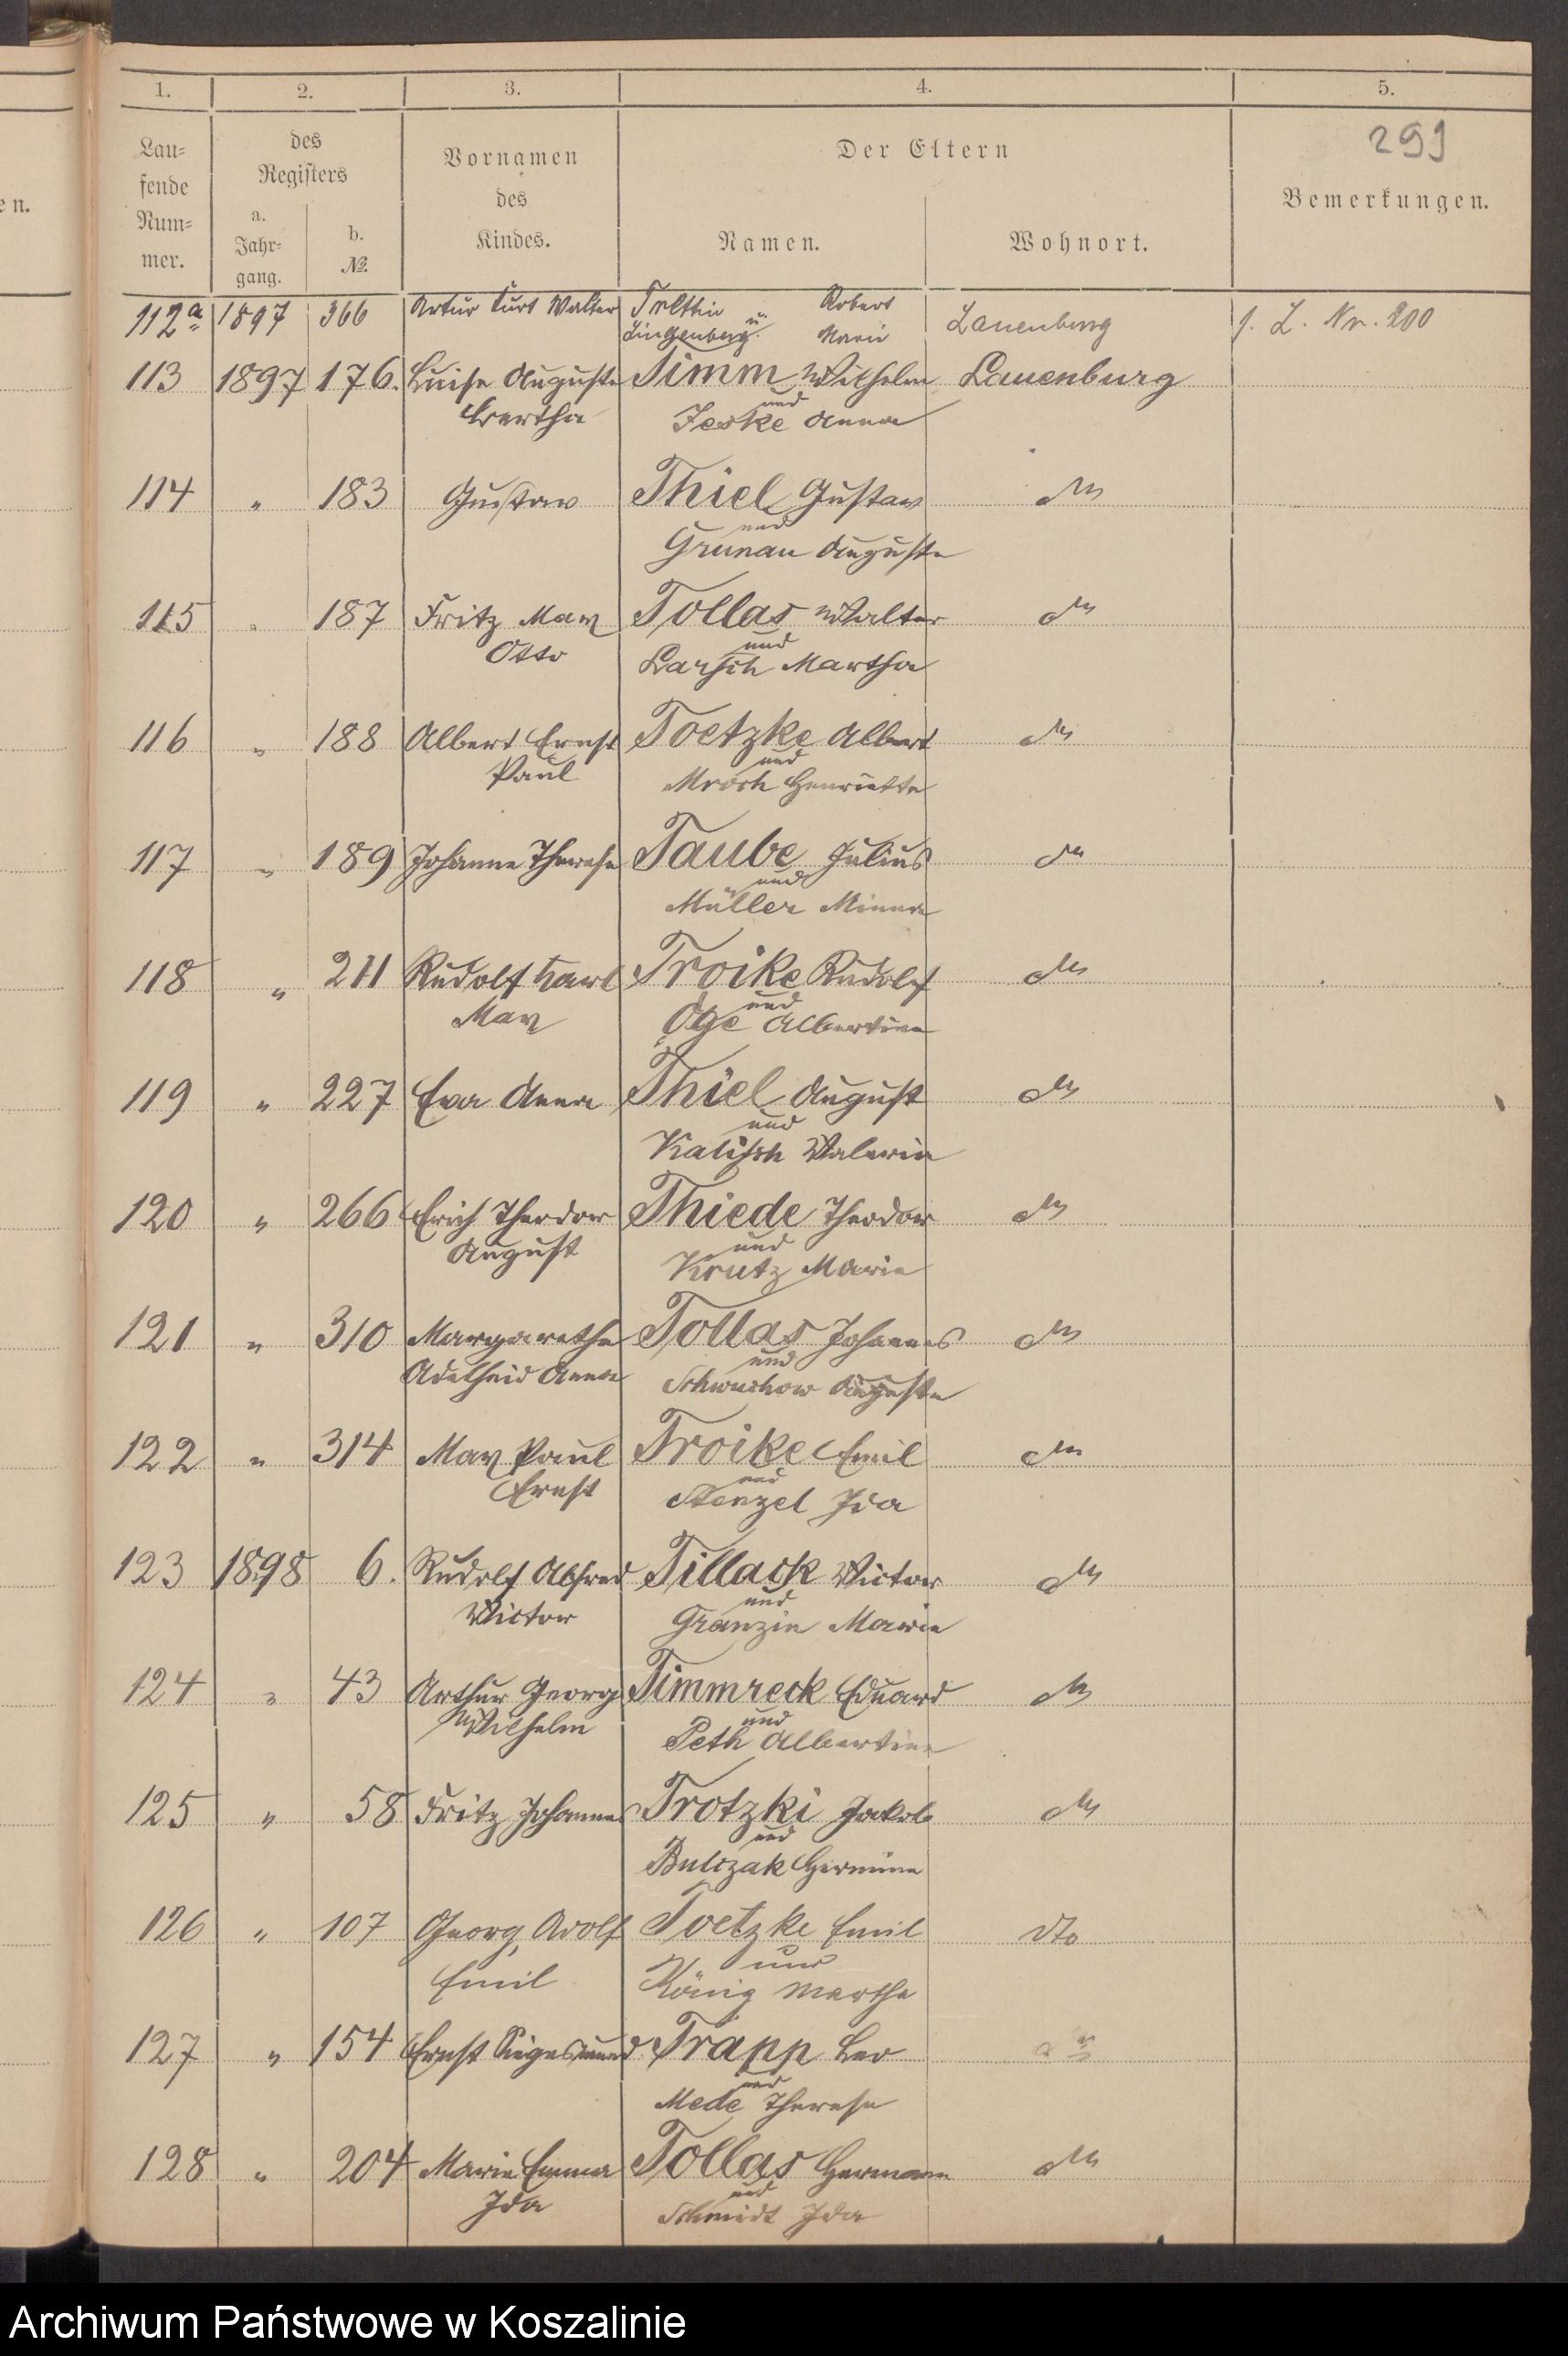 en.
1. 2. 3. 4. 5.
299
Lau=
fende
Num=
mer.
des
Registers
a.
Jahr=
gang.
b.
№.
Vornamen
des
Kindes.
Der Eltern
Namen. Wohnort.
Bemerkungen.
112a 1897 366 Artur Curt Walter Robert Lauenburg s. L. Nr. 200
Lingenberg u. Marie
113 1897 176. Luise Auguste Timm Wilhelm Lauenburg
Bertha und
Jeske Anna
114 " 183 Gustav Thiel Gustav do
und
Grunau Auguste
115 " 187 Fritz Max Tollas Walter do
Otto und
Larsch Martha
116 " 188 Albert Ernst Toetzke Albert do
Paul und
Mroch Henriette
117 " 189 Johanne Therese Taube Julius do
und
Müller Minna
118 " 211 Rudolf Karl Troike Rudolf do
Max und
Albertine
119 " 227 Eva Anna Thiel August do
und
Kalisch Valerie
120 " 266 Erich Theodor Thiede Theodor do
August und
Krutz Marie
121 " 310 Margarethe Tollas Johannes do
Adelheid Anna und
Schwuchow Auguste
122 " 314 Max Paul Troike Emil do
Ernst und
Stenzel Ida
123 1898 6. Rudolf Alfred Tillack Victor do
Victor und
Granzin Marie
124 " 43 Arthur Georg Timmreck Eduard do
Wilhelm und
Peth Albertine
125 " 58 Fritz Johannes Trotzki Jakob do
und
Bulczak Hermine
126 " 107 Georg Adolf Toetzke Emil dto
Emil und
König Martha
127 " 154 Ernst Siegesmund Trapp Leo do
und
Mede Therese
128 " 204 Marie Emma Tollas Hermann do
Ida und
Schmidt Ida
Archiwum Państwowe w Koszalinie